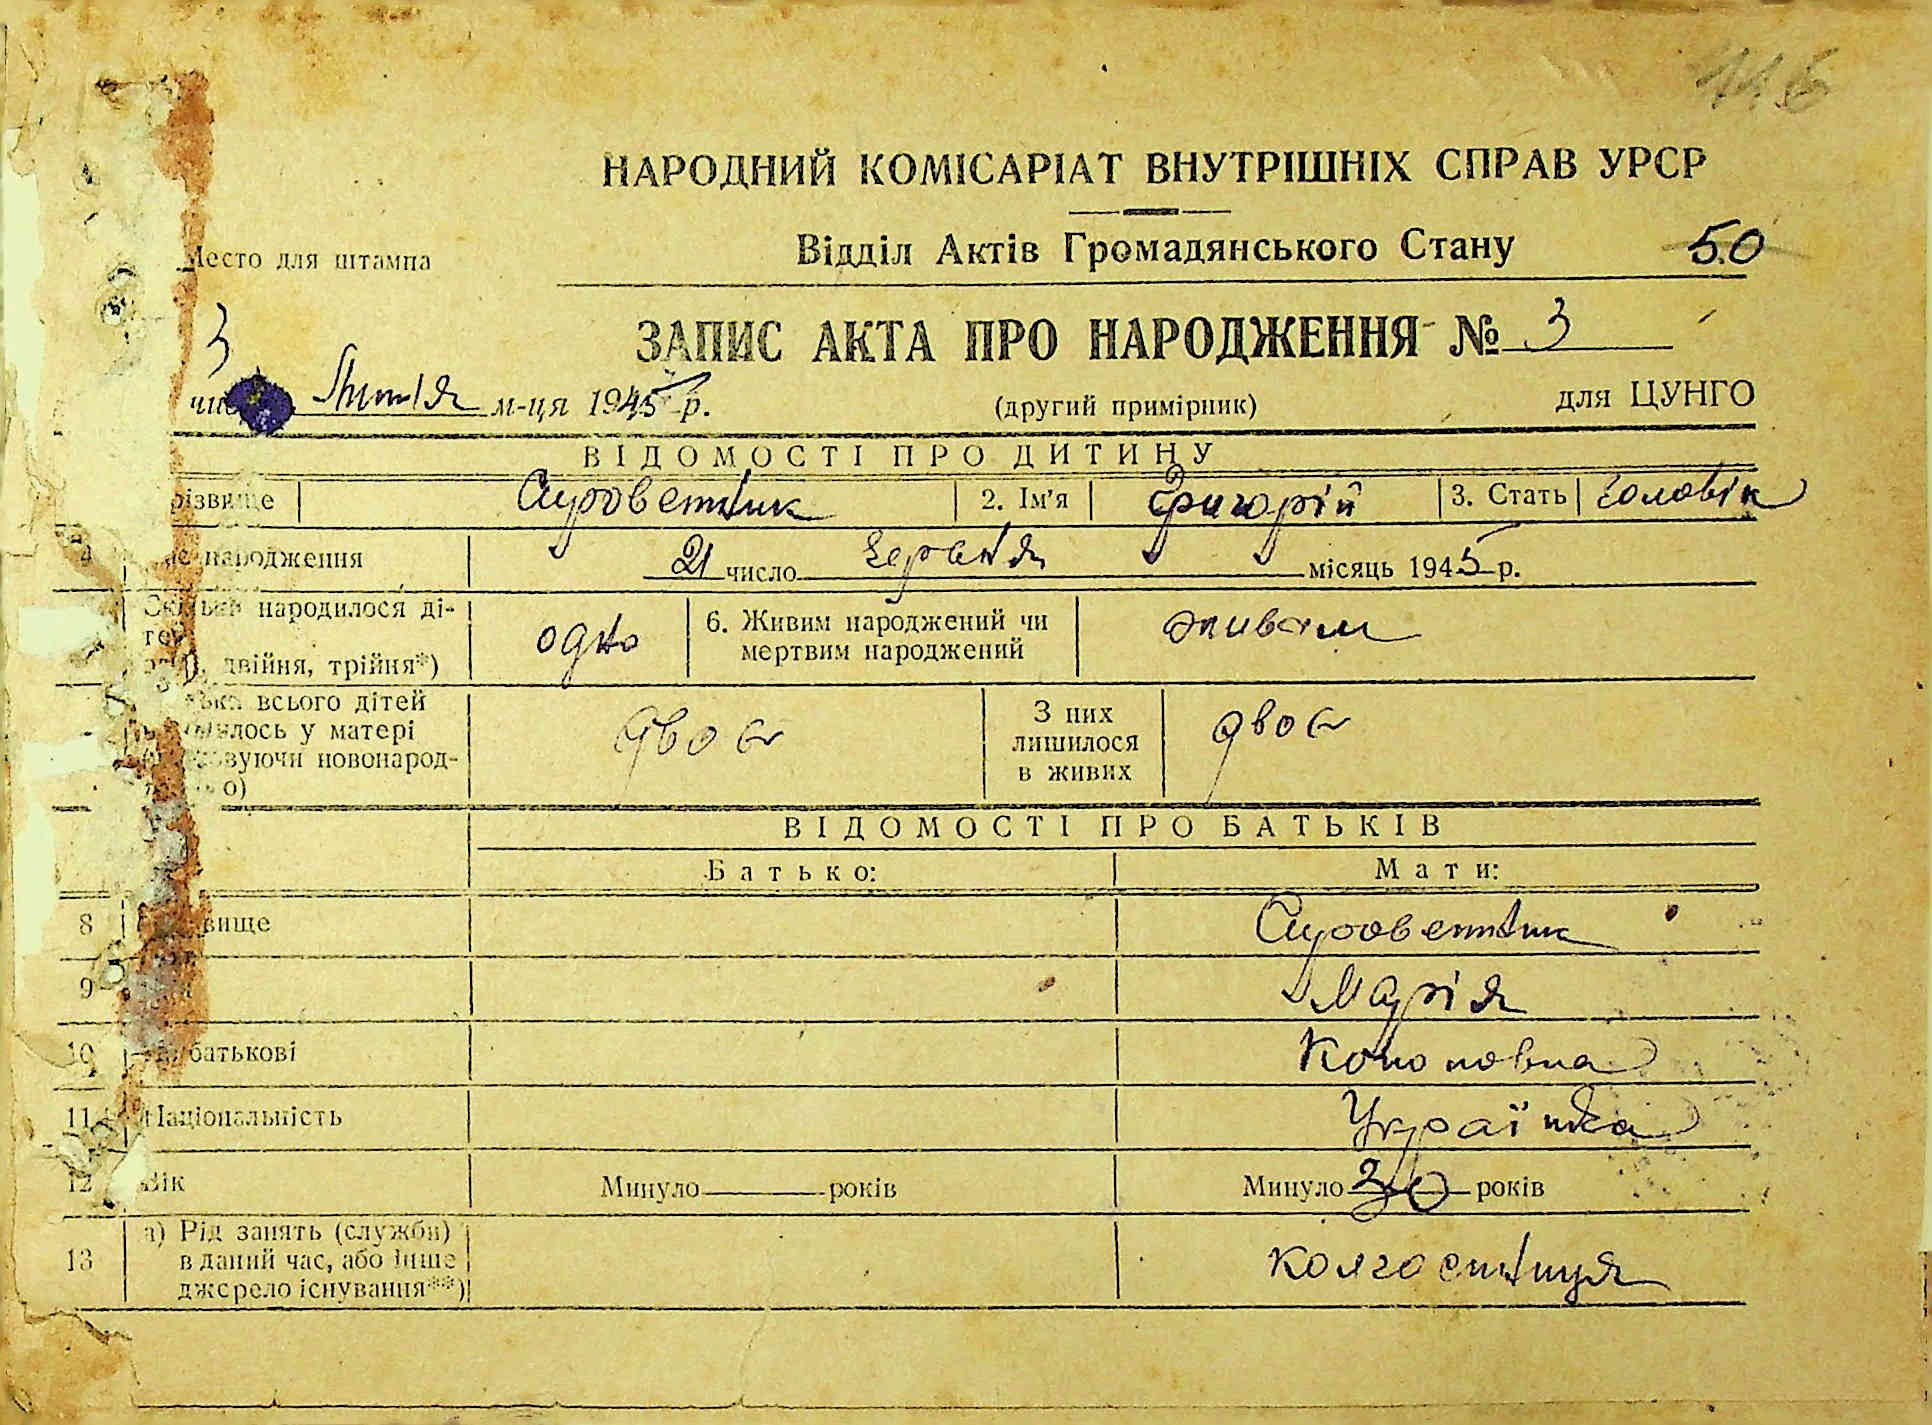 116
НАРОДНИЙ КОМІСАРІАТ ВНУТРІШНІХ СПРАВ УРСР
Место для штампа
Відділ Актів Громадянського Стану 50
3
ЗАПИС АКТА ПРО НАРОДЖЕННЯ № 3
Липня м-ця 1945 р. (другий примірник) для ЦУНГО
ВІДОМОСТІ ПРО ДИТИНУ
різвище Суроветник 2. Ім'я Григорій 3. Стать Чоловік
4 народження 21 число Червня місяць 1945 р.
народилося ді-
тей одно 6. Живим народжений чи живим
двійня, трійня*) мертвим народжений
всього дітей З них
лось у матері двоє лишилося двоє
вуючи новонарод- в живих
о)
ВІДОМОСТІ ПРО БАТЬКІВ
Батько: Мати:
8 вище Суроветник
9 Марія
10 батькові Кононовна
11 Національність Українка
12 Вік Минуло років Минуло 30 років
а) Рід занять (служби)
13 в даний час, або інше колгоспниця
джерело існування**)